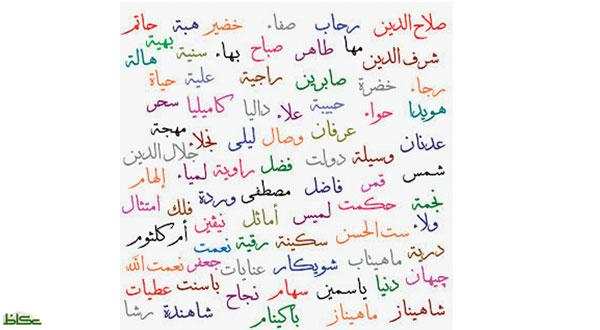 صلاح الدين رحاب صفاء خضير هبة حاتم
شرف الدين مها طاهر صباح بهاء سنية بهية هالة
رجاء خضرة صابرين راجية علية حياة
هويدا حواء حبيبة علاء داليا كاميليا سحر
عدنان عرفان وصال ليلى نجلاء مهجة
شمس وسيلة دولت فضل راوية لمياء جلال الدين
نجمة قمر فاضل مصطفى وردة إلهام
ولاء حكمت لميس أماثل نيفين فلك امتثال
درية ست الحسن سكينة رقية نعمت أم كلثوم
جيهان ماهيتاب شويكار عنايات جعفر نعمت الله
شاهيناز دنيا ياسمين سهام نجاح باسنت عطيات
ماهيناز باكينام شاهندة رشا
عكاظ